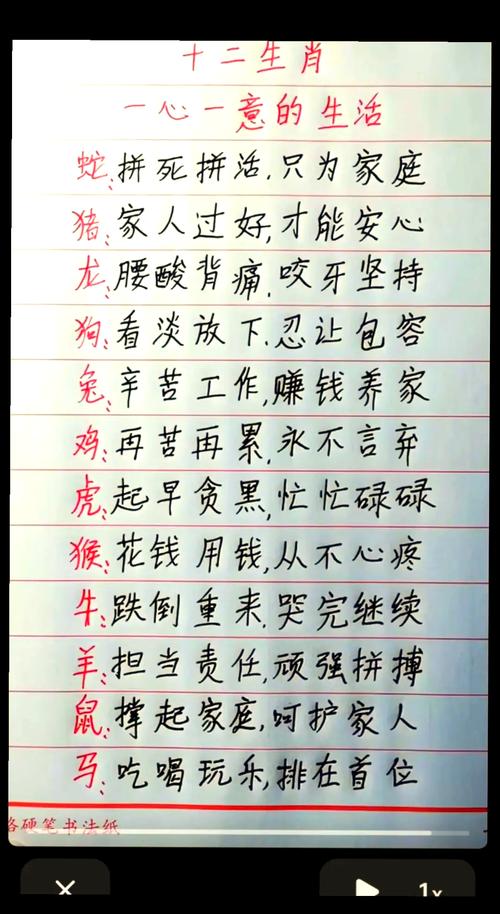 十二生肖
一心一意的生活
蛇:拼死拼活,只为家庭
猪:家人过好,才能安心
龙:腰酸背痛,咬牙坚持
狗:看淡放下,忍让包容
兔:辛苦工作,赚钱养家
鸡:再苦再累,永不言弃
虎:起早贪黑,忙忙碌碌
猴:花钱用钱,从不心疼
牛:跌倒重来,哭完继续
羊:担当责任,顽强拼搏
鼠:撑起家庭,呵护家人
马:吃喝玩乐,排在首位
格硬笔书法纸
1x